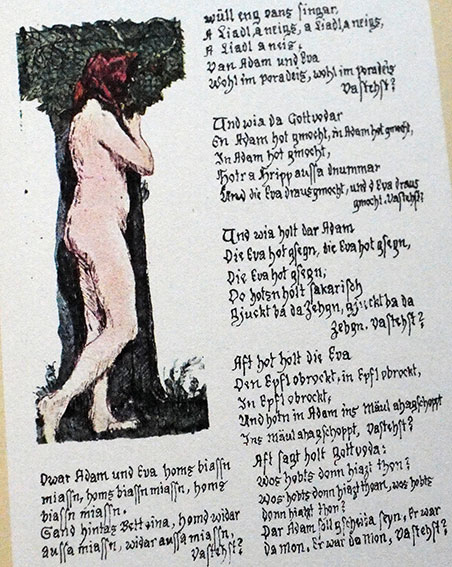 wüll eng vans singar,
A Liadl a neigs, a Liadl a neigs,
A Liadl a neis,
Van Adam und Eva
Wohl im poradeis, wohl im poradeis
Vastehst?
Und wia da Gottvodar
In Adam hot gmocht, in Adam hot gmocht,
In Adam hot gmocht,
Hotr a Kripp aussa dnummar
Und die Eva drausgmocht, und d Eva draus
gmocht. Vastehst?
Und wia holt dar Adam
Die Eva hot gsegn, die Eva hot gsegn,
Die Eva hot gsegn,
Do hotsn holt sakarisch
Gjuckt bá da Zehgn, gjuckt ba da
Zehgn. Vastehst?
Aft hot holt die Eva
Den Epfl obrockt, in Epfl obrockt,
In Epfl obrockt,
Und hotn in Adam ins Mäul ahagschoppt
Ins Mäul ahagschoppt, Vastehst?
Aft sagt holt Gottvoda:
Wos hobts donn hiazt thon?
Wos hobts donn hiazt thoan, wos hobts
donn hiazt thon?
Dar Adam soll gscheita seyn, Er war
da mon, Er war da mon, Vastehst?
Dwar Adam und Eva homs biassn
miassn, homs biassn miassn, homs
biassn miassn,
Sand hintas Bett eina, homd widar
aussa miassn, widar aussa miassn,
Vastehst?